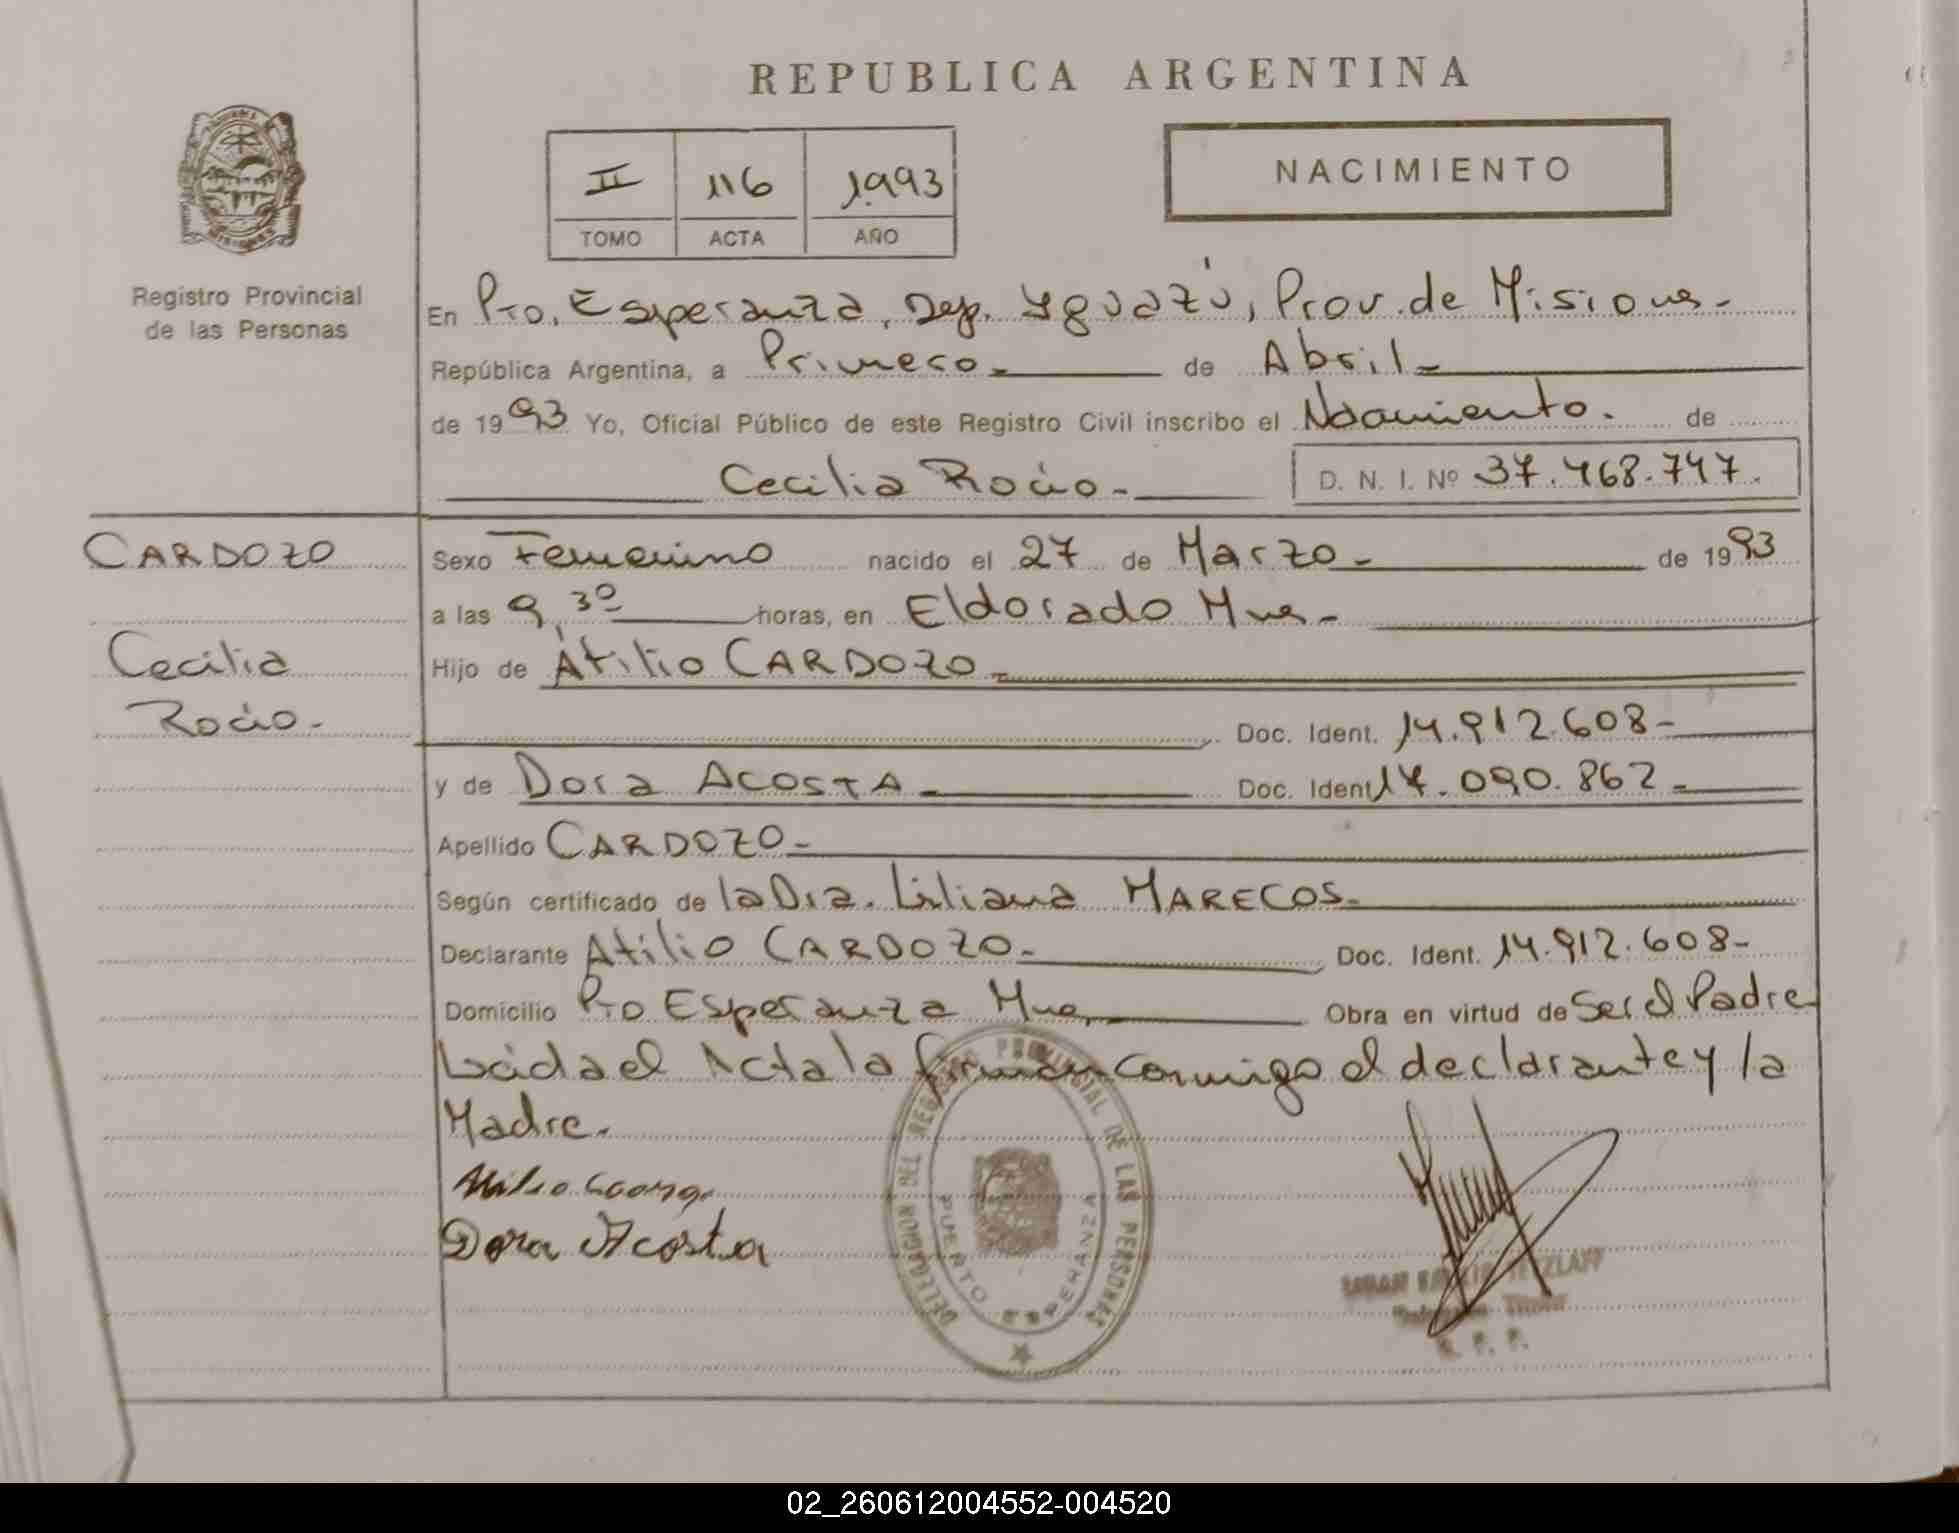 REPUBLICA ARGENTINA
II 116 1993
TOMO ACTA AÑO
NACIMIENTO
MISIONES
Registro Provincial
de las Personas
En Pto. Esperanza, Dep. Yguazú, Prov. de Misiones-
República Argentina, a Primero- de Abril-
de 1993 Yo, Oficial Público de este Registro Civil inscribo el Nacimiento. de
Cecilia Rocío- D. N. I. Nº 37.468.747.
CARDOZO
Cecilia
Rocío-
Sexo Femenino nacido el 27 de Marzo- de 1993
a las 9,30 horas, en Eldorado Mnes-
Hijo de Atilio CARDOZO-
Doc. Ident. 14.912.608-
y de Dora ACOSTA- Doc. Ident. 17.090.862-
Apellido CARDOZO-
Según certificado de la Dra. Liliana MARECOS-
Declarante Atilio CARDOZO- Doc. Ident. 14.912.608-
Domicilio Pto Esperanza Mnes- Obra en virtud de Ser el Padre
Leída el Acta la firman conmigo el declarante y la
Madre.
Dora Acosta
DELEGACION DEL REGISTRO PROVINCIAL DE LAS PERSONAS
PUERTO ESPERANZA
TETZLAFF
R. P. P.
02_260612004552-004520